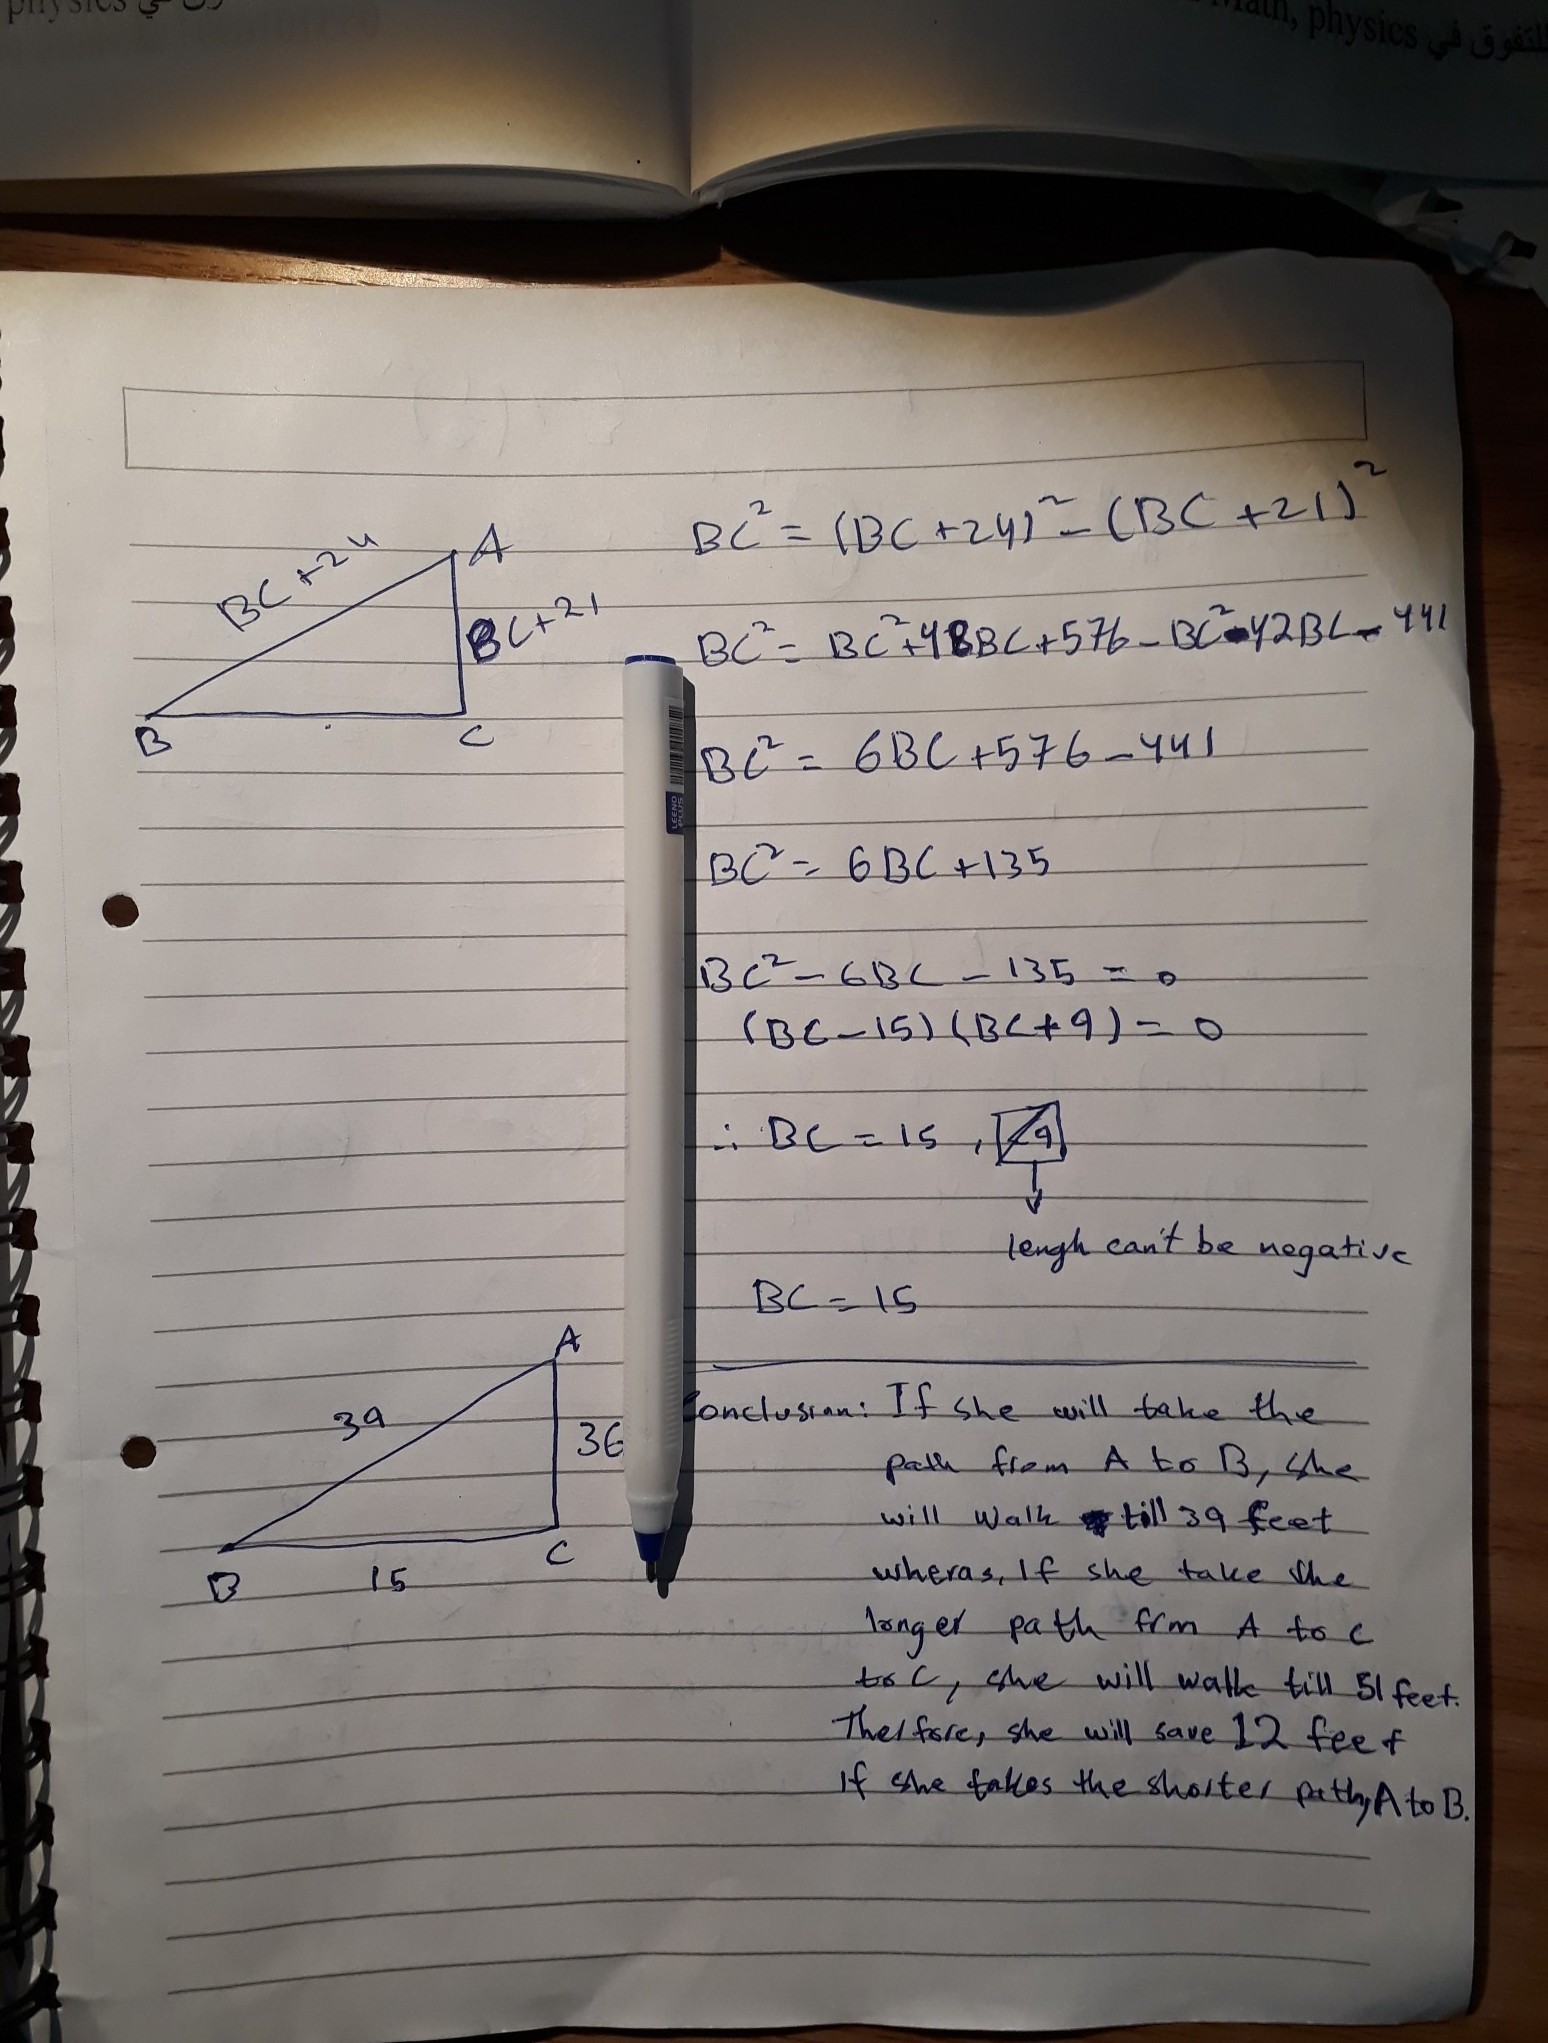 physics في
Math, physics للتفوق في
BC² = (BC+24)² - (BC+21)²
A
BC+24
BC+21
B
C
BC² = BC²+48BC+576-BC²-42BC-441
LEENO
PLUS
BC² = 6BC+576-441
BC² = 6BC+135
BC²-6BC-135=0
(BC-15)(BC+9)=0
∴ BC=15, -9
lengh can't be negative
BC=15
A
39
36
B
15
C
Conclusion: If she will take the
path from A to B, she
will walk till 39 feet
wheras, If she take the
longer path frm A to C
to C, she will walk till 51 feet.
Therfore, she will save 12 feet
if she takes the shorter path, A to B.